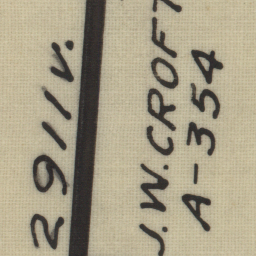 2911v.
J.W.CROFT
A-354